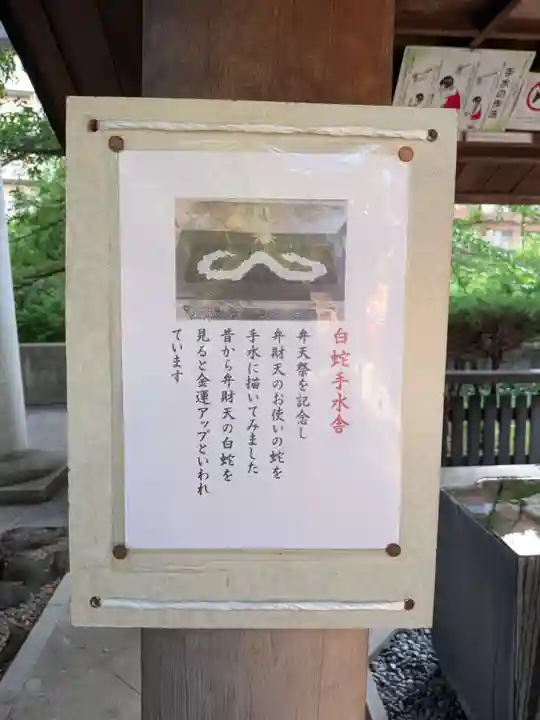 白蛇手水舎
弁天祭を記念し
弁財天のお使いの蛇を
手水に描いてみました
昔から弁財天の白蛇を
見ると金運アップといわれ
ています
手水の作法